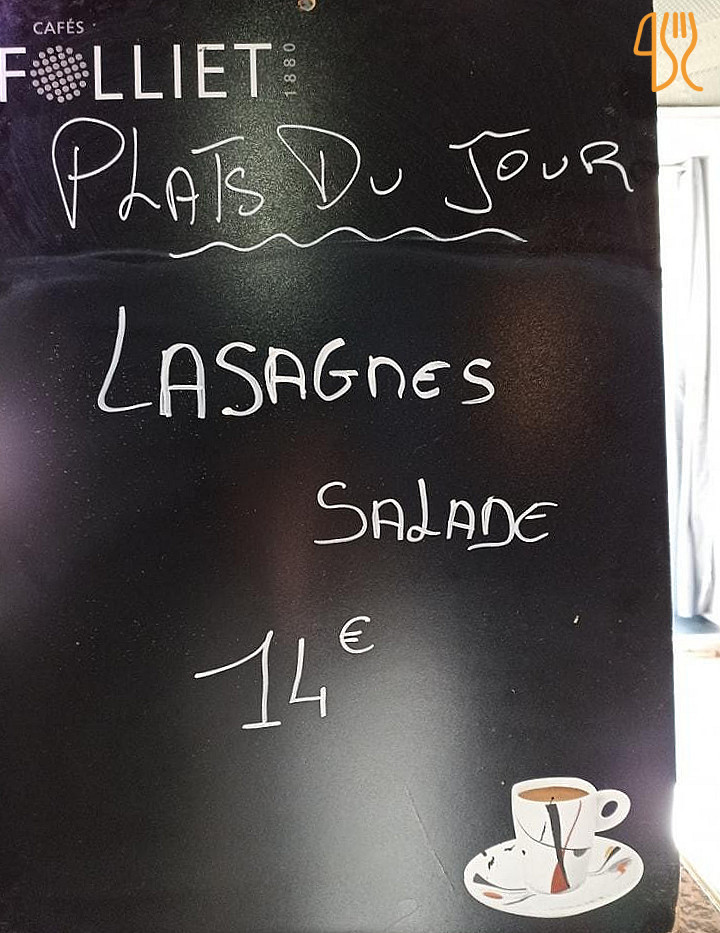 CAFÉS
FOLLIET 1880
PLATS DU JOUR
LASAGNES
SALADE
14€